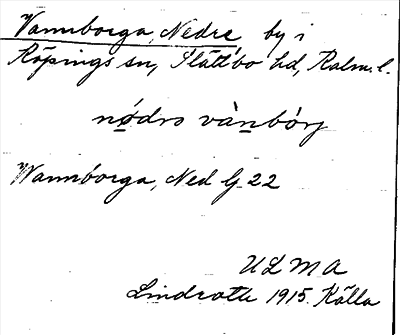 Vannborga, Nedre by i
Köpings sn, Slättbo hd, Kalm. l.
nødrɔ vànbórj
Wannborga, Ned G 22
ULMA
Lindroth 1915. Källa